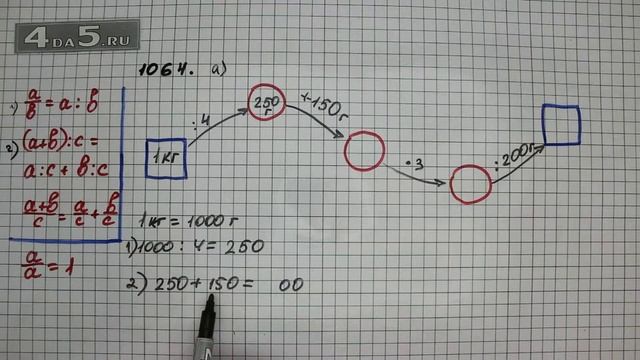 4DA5.RU
1064. а)
1) a/b = a : b
2) (a+b):c =
a:c + b:c
a+b/c = a/c + b/c
a/a = 1
1кг
:4
250 г
+150г
•3
:200г
1кг = 1000 г
1) 1000 : 4 = 250
2) 250 + 150 = 00